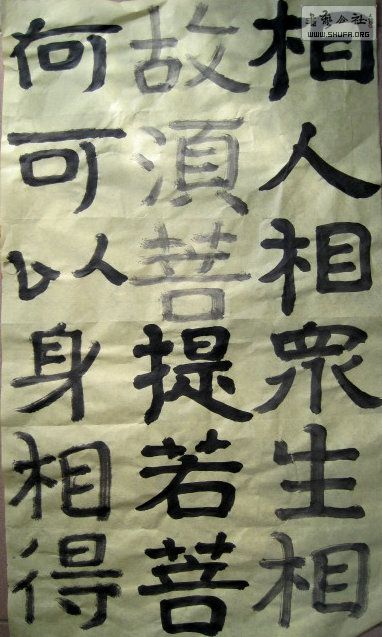 相人相衆生相
故湏菩提若菩
何可以身相得
WWW.SHUFA.ORG